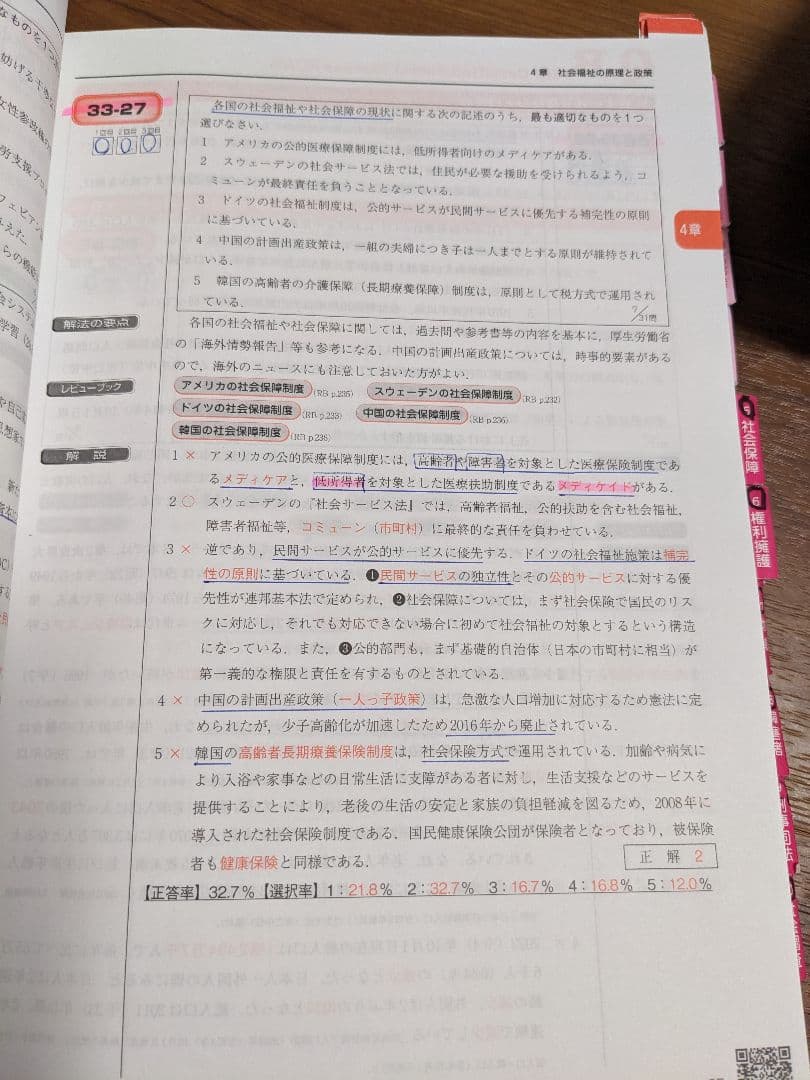 4章 社会福祉の原理と政策
33-27
1回目 2回目 3回目
各国の社会福祉や社会保障の現状に関する次の記述のうち，最も適切なものを1つ
選びなさい．
1 アメリカの公的医療保障制度には，低所得者向けのメディケアがある．
2 スウェーデンの社会サービス法では，住民が必要な援助を受けられるよう，コ
ミューンが最終責任を負うこととなっている．
3 ドイツの社会福祉制度は，公的サービスが民間サービスに優先する補完性の原則
に基づいている．
4 中国の計画出産政策は，一組の夫婦につき子は一人までとする原則が維持されて
いる．
5 韓国の高齢者の介護保障（長期療養保障）制度は，原則として税方式で運用され
ている．
4章
解法の要点
各国の社会福祉や社会保障に関しては，過去問や参考書等の内容を基本に，厚生労働省
の「海外情勢報告」等も参考になる．中国の計画出産政策については，時事的要素がある
ので，海外のニュースにも注意しておいた方がよい．
レビューブック
アメリカの社会保障制度 (RB p.235) スウェーデンの社会保障制度 (RB p.232)
ドイツの社会保障制度 (RB p.233) 中国の社会保障制度 (RB p.236)
韓国の社会保障制度 (RB p.236)
解説
1 × アメリカの公的医療保障制度には，高齢者や障害者を対象とした医療保険制度であ
るメディケアと，低所得者を対象とした医療扶助制度であるメディケイドがある．
2 ○ スウェーデンの『社会サービス法』では，高齢者福祉，公的扶助を含む社会福祉，
障害者福祉等，コミューン（市町村）に最終的な責任を負わせている．
3 × 逆であり，民間サービスが公的サービスに優先する．ドイツの社会福祉施策は補完
性の原則に基づいている．❶民間サービスの独立性とその公的サービスに対する優
先性が連邦基本法で定められ，❷社会保障については，まず社会保険で国民のリス
クに対応し，それでも対応できない場合に初めて社会福祉の対象とするという構造
になっている．また，❸公的部門も，まず基礎的自治体（日本の市町村に相当）が
第一義的な権限と責任を有するものとされている．
4 × 中国の計画出産政策（一人っ子政策）は，急激な人口増加に対応するため憲法に定
められたが，少子高齢化が加速したため2016年から廃止されている．
5 × 韓国の高齢者長期療養保険制度は，社会保険方式で運用されている．加齢や病気に
より入浴や家事などの日常生活に支障がある者に対し，生活支援などのサービスを
提供することにより，老後の生活の安定と家族の負担軽減を図るため，2008年に
導入された社会保険制度である．国民健康保険公団が保険者となっており，被保険
者も健康保険と同様である．
正解 2
【正答率】32.7％【選択率】1：21.8％ 2：32.7％ 3：16.7％ 4：16.8％ 5：12.0％
5 社会保障
6 権利擁護